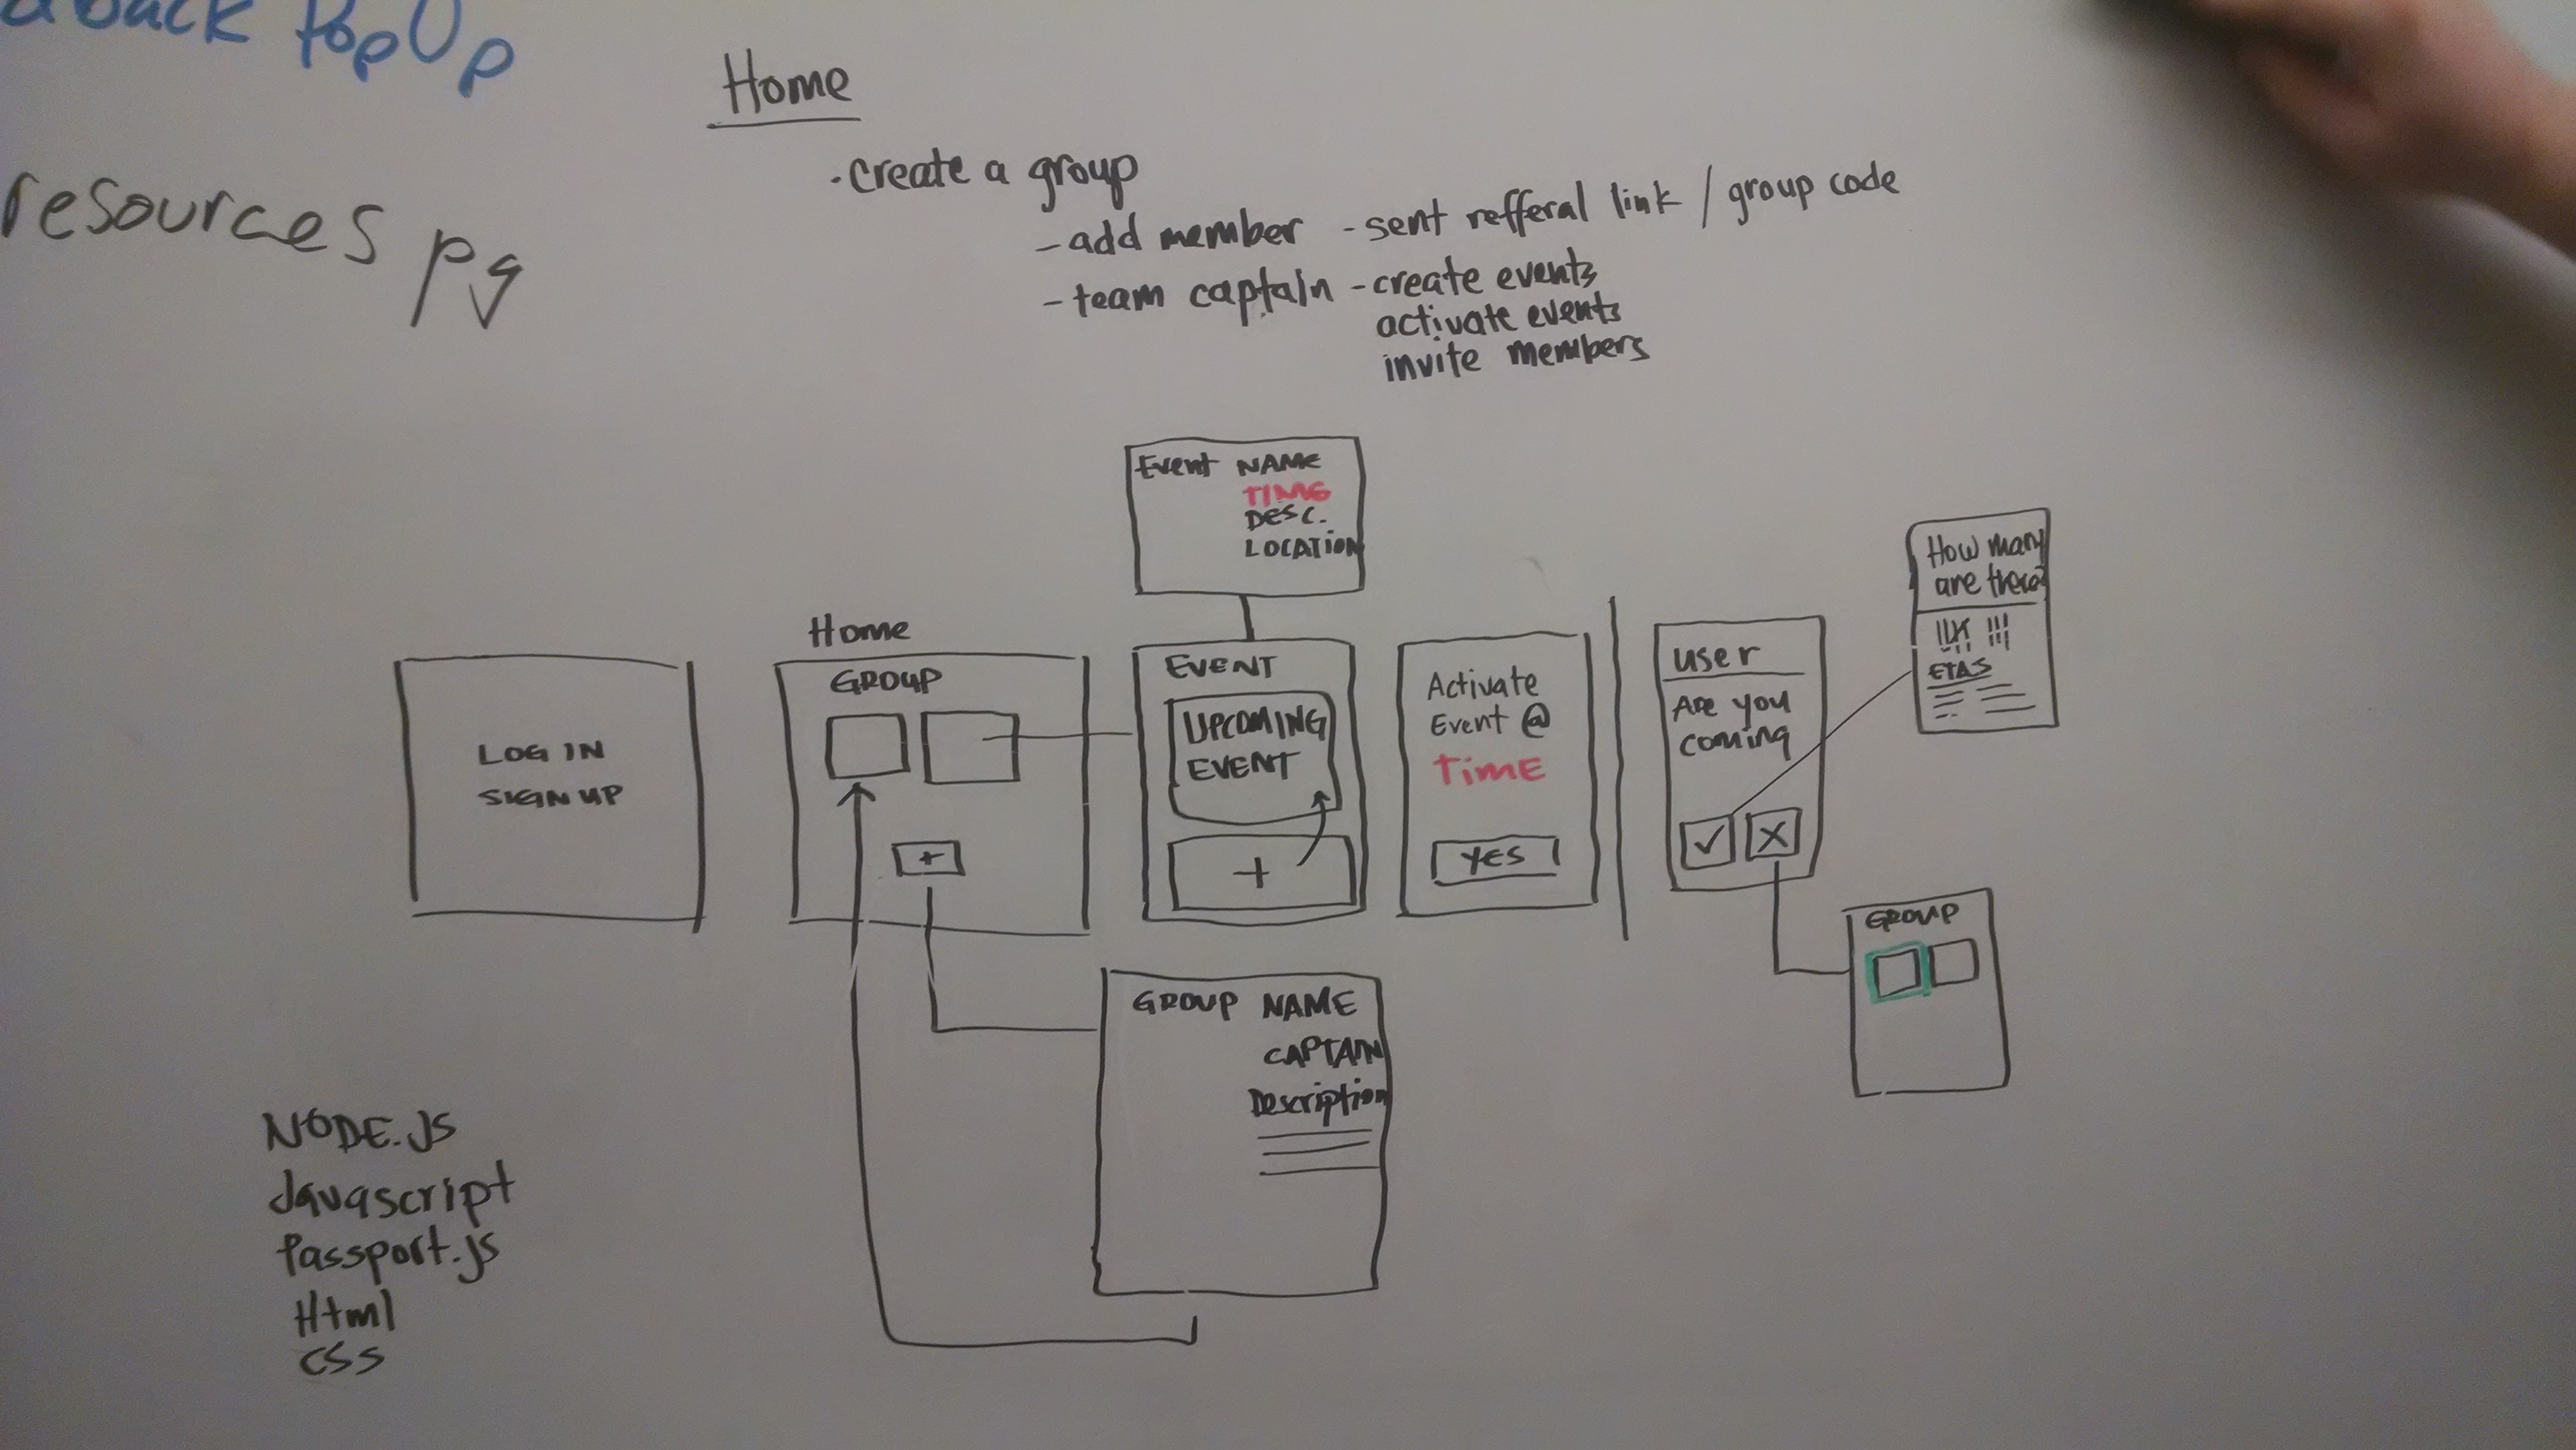 back PopUp
resources pg
Home
· create a group
- add member - sent refferal link / group code
- team captain - create events
activate events
invite members
Event NAME
TIME
DESC.
LOCATION
How many
are there?
ETAS
Home
GROUP
+
LOG IN
SIGN UP
EVENT
UPCOMING
EVENT
+
Activate
Event @
TiME
YES
user
Are you
coming
✓ X
GROUP
GROUP NAME
CAPTAIN
Description
NODE.JS
Javascript
Passport.js
Html
CSS